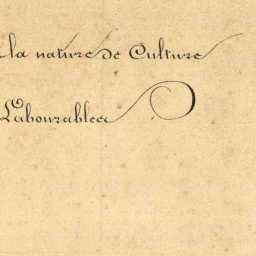 la nature de Culture
Labourables